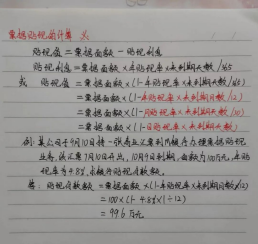 票据贴现的计算
贴现值 = 票据面额 - 贴现利息
贴现利息 = 票据面额 × 年贴现率 × 未到期天数/365
或 贴现值 = 票据面额 × (1-年贴现率 × 未到期天数/365)
= 票据面额 × (1-年贴现率 × 未到期月数/12)
= 票据面额 × (1-月贴现率 × 未到期天数/30)
= 票据面额 × (1-日贴现率 × 未到期天数)
例: 某公司于9月10日持一张商业汇票到银行办理票据贴现
业务, 该汇票7月10日开出, 10月9日到期, 面额为100万元, 年贴现
率为4.8%, 求银行贴现付款额。
答: 贴现付款额 = 票据面额 × (1-年贴现率 × 未到期月数/12)
= 100 × (1-4.8% × 1÷12)
= 99.6 万元